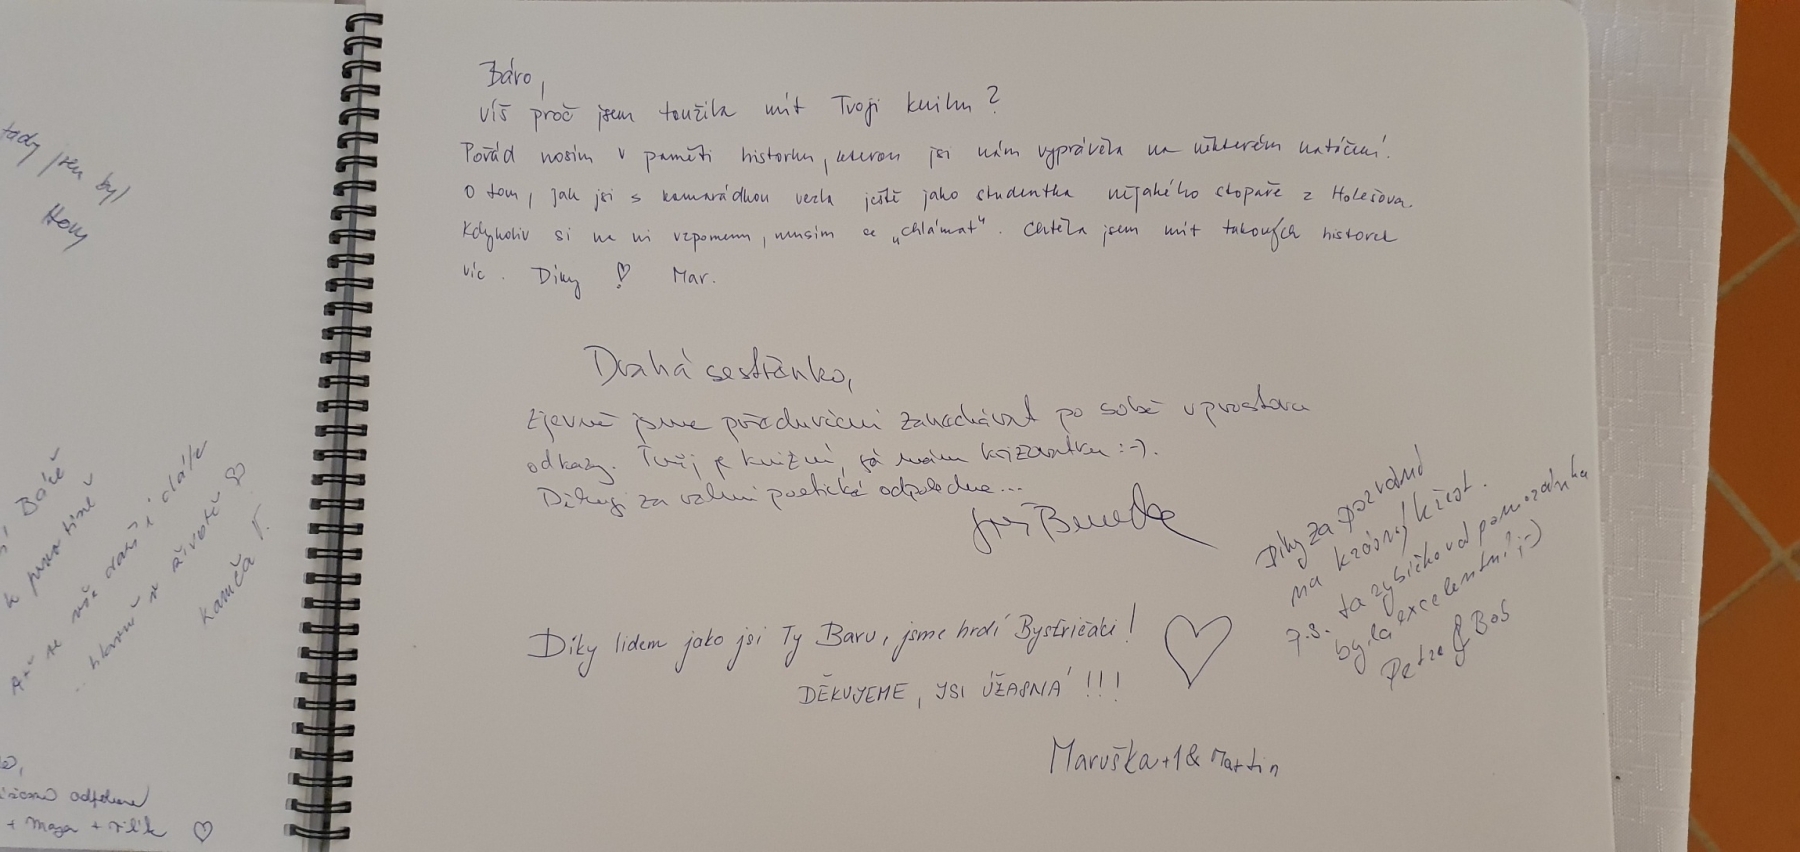 tady jsem byl
Báře
Ať se
i dále
... hlavně v životě
Kamča
+ Maga +
Báro,
víš proč jsem toužila mít Tvoji knihu?
Pořád nosím v paměti historku, kterou jsi nám vyprávěla na některém natáčení.
O tom, jak jsi s kamarádkou vezla ještě jako studentka nějakého stopaře z Holešova.
Kdykoliv si na ni vzpomenu, musím se „chlámat“. Chtěla jsem mít takových historek
víc. Díky ♡ Mar.
Drahá sestřenko,
zjevně jsme předurčeni zanechávat po sobě v prostoru
odkazy. Tvůj je knižní, já mám :-).
Děkuji za velmi poetické odpoledne...
Díky lidem jako jsi Ty Baru, jsme hrdí Bystřičáci!
DĚKUJEME, JSI ÚŽASNÁ!!!
Maruška+1 & Martin
Díky za pozvání
na krásný křest.
P.S. ta rybičková pomazánka
byla excelentní ;-)
Petra & Bob